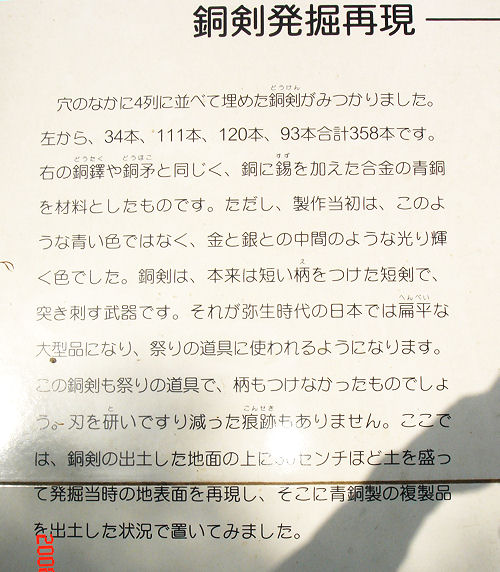 銅剣発掘再現
穴のなかに4列に並べて埋めた銅剣がみつかりました。
左から、34本、111本、120本、93本合計358本です。
右の銅鐸や銅矛と同じく、銅に錫を加えた合金の青銅
を材料としたものです。ただし、製作当初は、このよ
うな青い色ではなく、金と銀との中間のような光り輝
く色でした。銅剣は、本来は短い柄をつけた短剣で、
突き刺す武器です。それが弥生時代の日本では扁平な
大型品になり、祭りの道具に使われるようになります。
この銅剣も祭りの道具で、柄もつけなかったものでしょ
う。刃を研いですり減った痕跡もありません。ここで
は、銅剣の出土した地面の上にセンチほど土を盛っ
て発掘当時の地表面を再現し、そこに青銅製の複製品
を出土した状況で置いてみました。